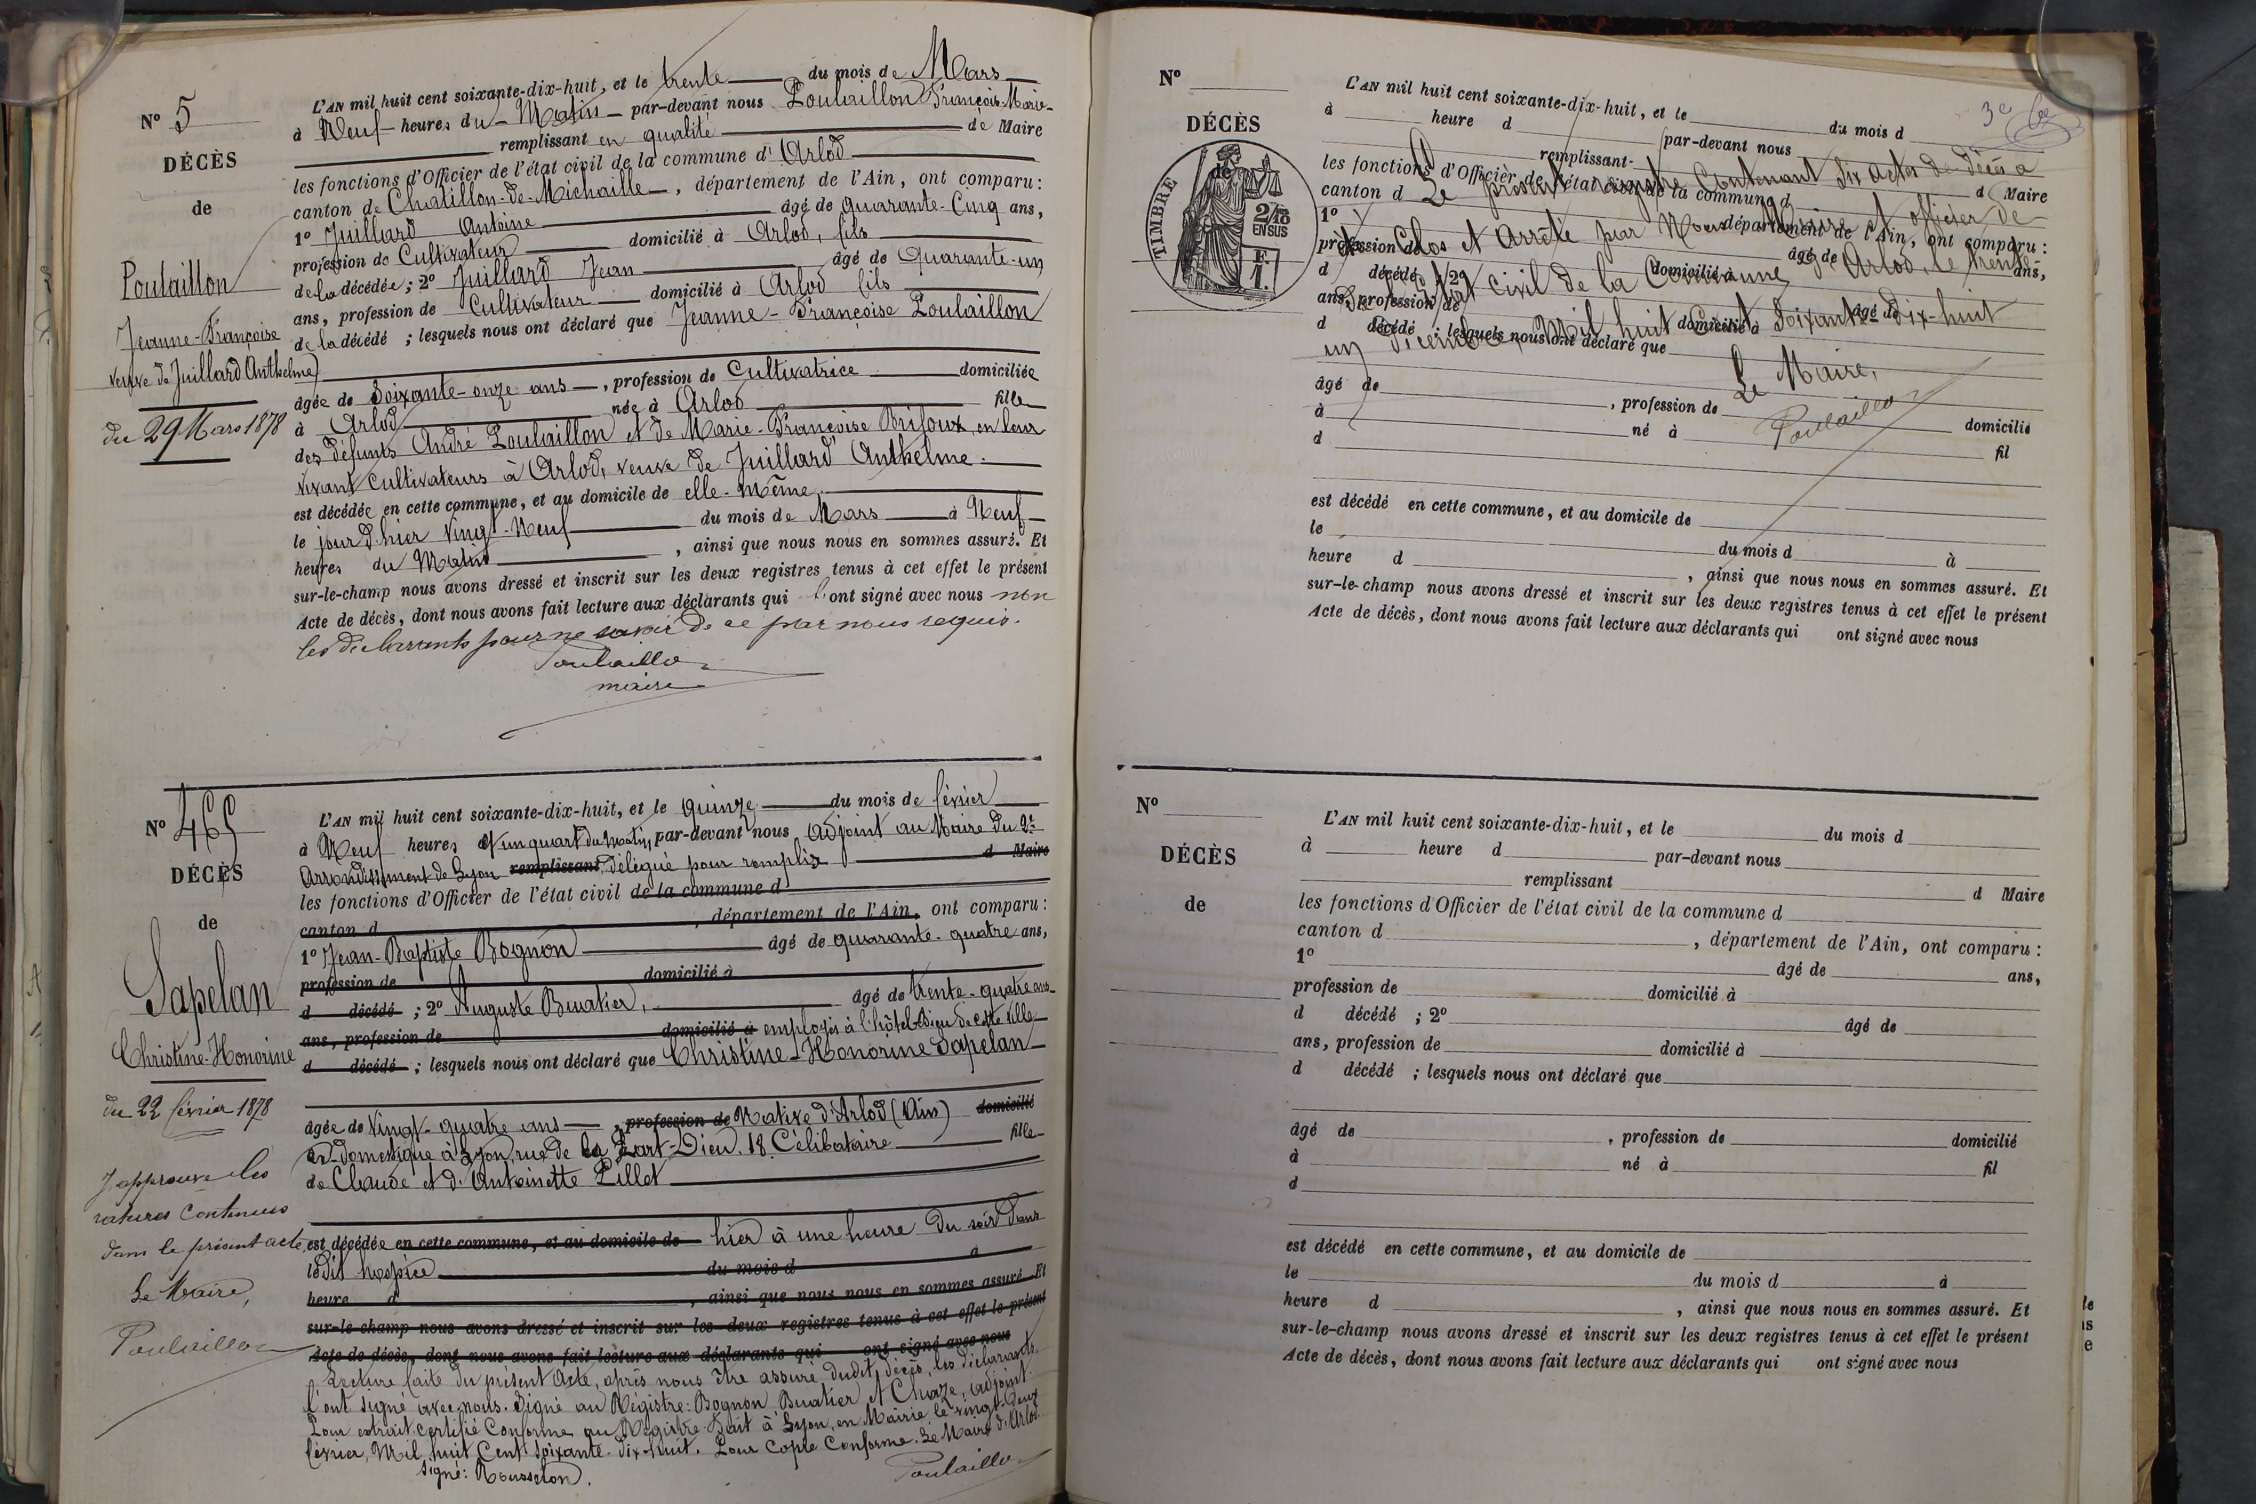 N° 5
DÉCÈS
de
Poulaillon
Jeanne-Françoise
veuve de Juillard Anthelme
du 29 Mars 1878
L'AN mil huit cent soixante-dix-huit, et le trente du mois de Mars
à Neuf heures du Matin par-devant nous Poulaillon François-Marie
remplissant en qualité de Maire
les fonctions d'Officier de l'état civil de la commune d'Arlod
canton de Chatillon-de-Michaille, département de l'Ain, ont comparu :
1° Juillard Antoine âgé de quarante-Cinq ans,
profession de Cultivateur domicilié à Arlod, fils
de la décédée ; 2° Juillard Jean âgé de Quarante-un
ans, profession de Cultivateur domicilié à Arlod fils
de la décédé ; lesquels nous ont déclaré que Jeanne-Françoise Poulaillon
âgée de Soixante-onze ans, profession de Cultivatrice domiciliée
à Arlod née à Arlod fille
des défunts André Poulaillon et de Marie-Françoise Brifoux, en leur
vivant cultivateurs à Arlod, veuve de Juillard Anthelme.
est décédée en cette commune, et au domicile de elle-même,
le jour d'hier Vingt-Neuf du mois de Mars à Neuf
heures du Matin, ainsi que nous nous en sommes assuré. Et
sur-le-champ nous avons dressé et inscrit sur les deux registres tenus à cet effet le présent
Acte de décès, dont nous avons fait lecture aux déclarants qui l'ont signé avec nous non
les déclarants pour ne savoir de ce par nous requis.
Poulaillon
maire
N° 465
DÉCÈS
de
Sapelan
Christine-Honorine
du 22 février 1878
J'approuve les
ratures contenues
dans le présent acte
Le Maire,
Poulaillon
L'AN mil huit cent soixante-dix-huit, et le quinze du mois de février
à Neuf heures et un quart du Matin, par-devant nous, adjoint au Maire du 2e
Arrondissement de Lyon remplissant délégué pour remplir d Maire
les fonctions d'Officier de l'état civil de la commune d
canton d , département de l'Ain, ont comparu :
1° Jean-Baptiste Bognon âgé de quarante-quatre ans,
profession de domicilié à
d décédé ; 2° Auguste Buatier, âgé de trente-quatre ans
ans, profession de domicilié à employés à l'hôtel-Dieu de cette ville
d décédé ; lesquels nous ont déclaré que Christine-Honorine Sapelan
âgée de Vingt-quatre ans, profession de Native d'Arlod (Ain) domicilié
domestique à Lyon, rue de la Part-Dieu, 18. Célibataire fille
de Claude et d'Antoinette Pillet
est décédée en cette commune, et au domicile de hier à une heure du soir dans
le dit hospice du mois d à
heure d , ainsi que nous nous en sommes assuré. Et
sur-le-champ nous avons dressé et inscrit sur les deux registres tenus à cet effet le présent
Acte de décès, dont nous avons fait lecture aux déclarants qui ont signé avec nous
Lecture faite du présent Acte, après nous être assuré dudit décès, les déclarants
l'ont signé avec nous. Signé au Régistre: Bognon Buatier et Chaze, adjoint.
Pour extrait certifié Conforme au Régistre Fait à Lyon, en Mairie, le vingt-deux
février, Mil huit Cent Soixante-dix-huit. Pour Copie Conforme. Le Maire d'Arlod
signé: Rousselon. Poulaillon
N°
DÉCÈS
de
TIMBRE
2/10 EN SUS
F
1.
3e
L'AN mil huit cent soixante-dix-huit, et le du mois d
à heure d par-devant nous
remplissant d Maire
les fonctions d'Officier de l'état civil de la commune d
canton d , département de l'Ain, ont comparu :
1° âgé de ans,
profession de domicilié à
d décédé ; 2° âgé de
ans, profession de domicilié à
d décédé ; lesquels nous ont déclaré que
Le présent régistre Contenant Six actes de décès a
été Clos et Arrêté par Nous Maire et officier de
de l'état civil de la Commune d'Arlod, le trente
un Décembre, Mil huit Cent Soixante-dix-huit
Le Maire,
Poulaillon
âgé de , profession de domicilié
à né à fil
d
est décédé en cette commune, et au domicile de
le du mois d à
heure d , ainsi que nous nous en sommes assuré. Et
sur-le-champ nous avons dressé et inscrit sur les deux registres tenus à cet effet le présent
Acte de décès, dont nous avons fait lecture aux déclarants qui ont signé avec nous
N°
DÉCÈS
de
L'AN mil huit cent soixante-dix-huit, et le du mois d
à heure d par-devant nous
remplissant d Maire
les fonctions d'Officier de l'état civil de la commune d
canton d , département de l'Ain, ont comparu :
1° âgé de ans,
profession de domicilié à
d décédé ; 2° âgé de
ans, profession de domicilié à
d décédé ; lesquels nous ont déclaré que
âgé de , profession de domicilié
à né à fil
d
est décédé en cette commune, et au domicile de
le du mois d à
heure d , ainsi que nous nous en sommes assuré. Et
sur-le-champ nous avons dressé et inscrit sur les deux registres tenus à cet effet le présent
Acte de décès, dont nous avons fait lecture aux déclarants qui ont signé avec nous